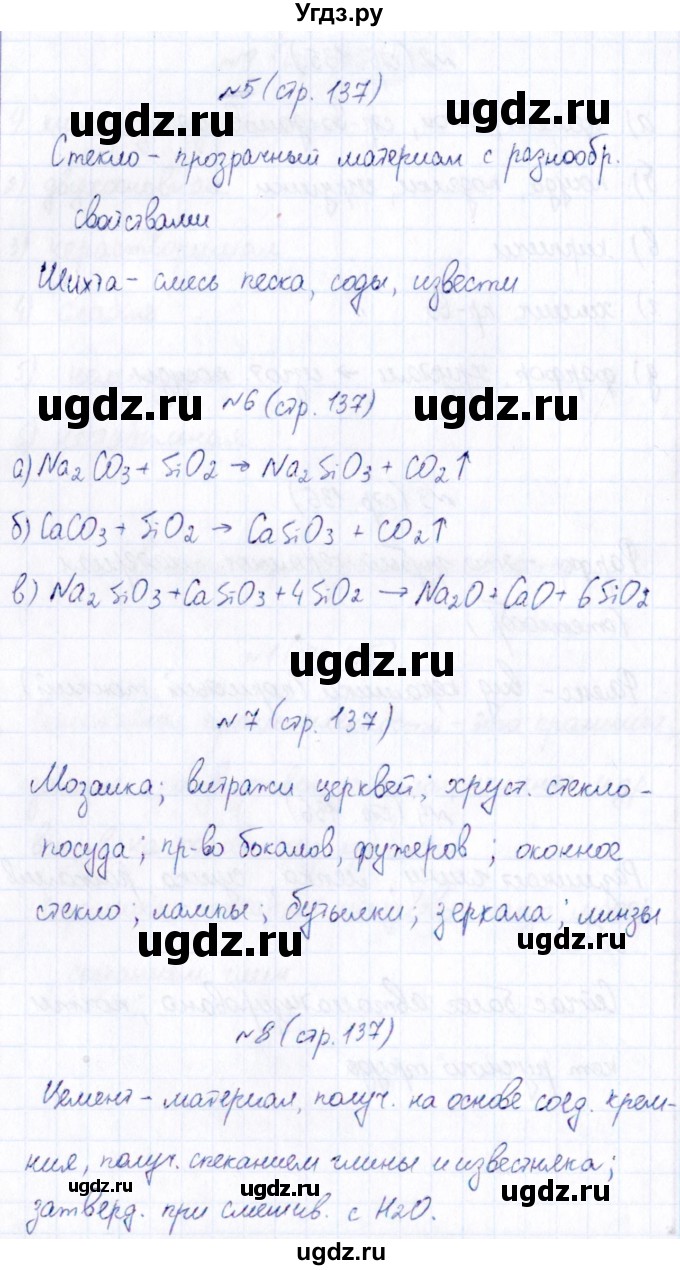 Угдз.ру
№5 (стр. 137)
ugdz.ru ugdz.ru
Стекло - прозрачный материал с разнообр.
свойствами
Шихта - смесь песка, соды, извести
№6 (стр. 137)
ugdz.ru ugdz.ru
а) Na2CO3 + SiO2 → Na2SiO3 + CO2↑
б) CaCO3 + SiO2 → CaSiO3 + CO2↑
в) Na2SiO3 + CaSiO3 + 4SiO2 → Na2O + CaO + 6SiO2
ugdz.ru
№7 (стр. 137)
Мозаика; витражи церквей; хруст. стекло -
посуда; пр-во бокалов, фужеров; оконное
стекло; лампы; бутылки; зеркала; линзы
ugdz.ru ugdz.ru
№8 (стр. 137)
Цемент - материал, получ. на основе соед. крем-
ния, получ. спеканием глины и известняка;
ugdz.ru ugdz.ru ugdz.ru
затверд. при смешив. с H2O.
ugdz.ru